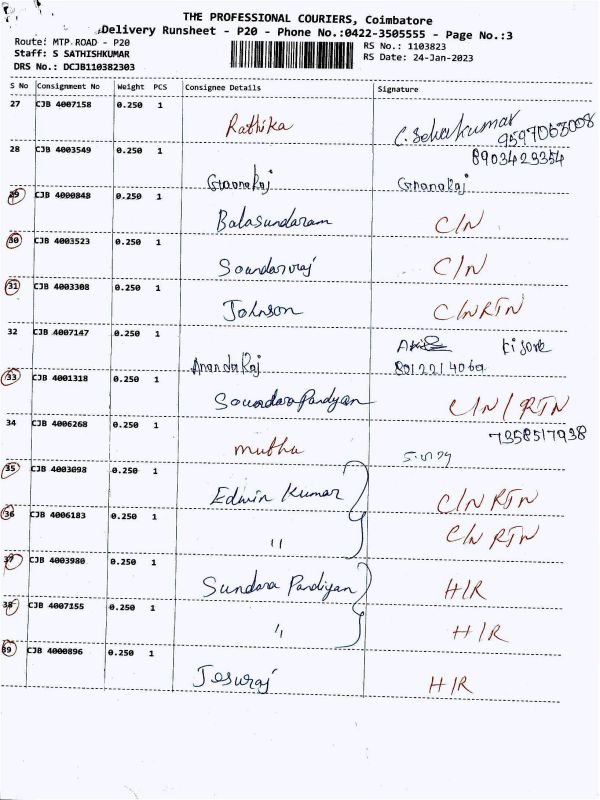 THE PROFESSIONAL COURIERS, Coimbatore
Delivery Runsheet - P20 - Phone No.:0422-3505555 - Page No.:3
Route: MTP ROAD - P20
RS No.: 1103823
Staff: S SATHISHKUMAR
RS Date: 24-Jan-2023
DRS No.: DCJB110382303
S No Consignment No Weight PCS Consignee Details Signature
27 CJB 4007158 0.250 1
Rathika C. Senakumar 9597063008
28 CJB 4003549 0.250 1 8903429354
Gnanaraj Gnanaraj
29 CJB 4000848 0.250 1
Balasundaram C/N
30 CJB 4003523 0.250 1
Soundarraj C/N
31 CJB 4003308 0.250 1
Johnson C/NRTN
32 CJB 4007147 0.250 1
Kisore
AnandaRaj 8012214069
33 CJB 4001318 0.250 1
SoundaraPandyan C/N/RTN
34 CJB 4006268 0.250 1 7358517938
muthu
35 CJB 4003098 0.250 1
Edwin Kumar C/N RTN
36 CJB 4006183 0.250 1
" C/N RTN
37 CJB 4003980 0.250 1
Sundara Pandiyan H/R
38 CJB 4007155 0.250 1
" H/R
39 CJB 4000896 0.250 1
Jesuraj H/R